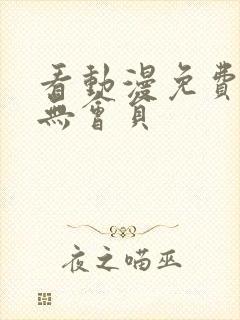 看動漫免費
無會員
夜之喵巫